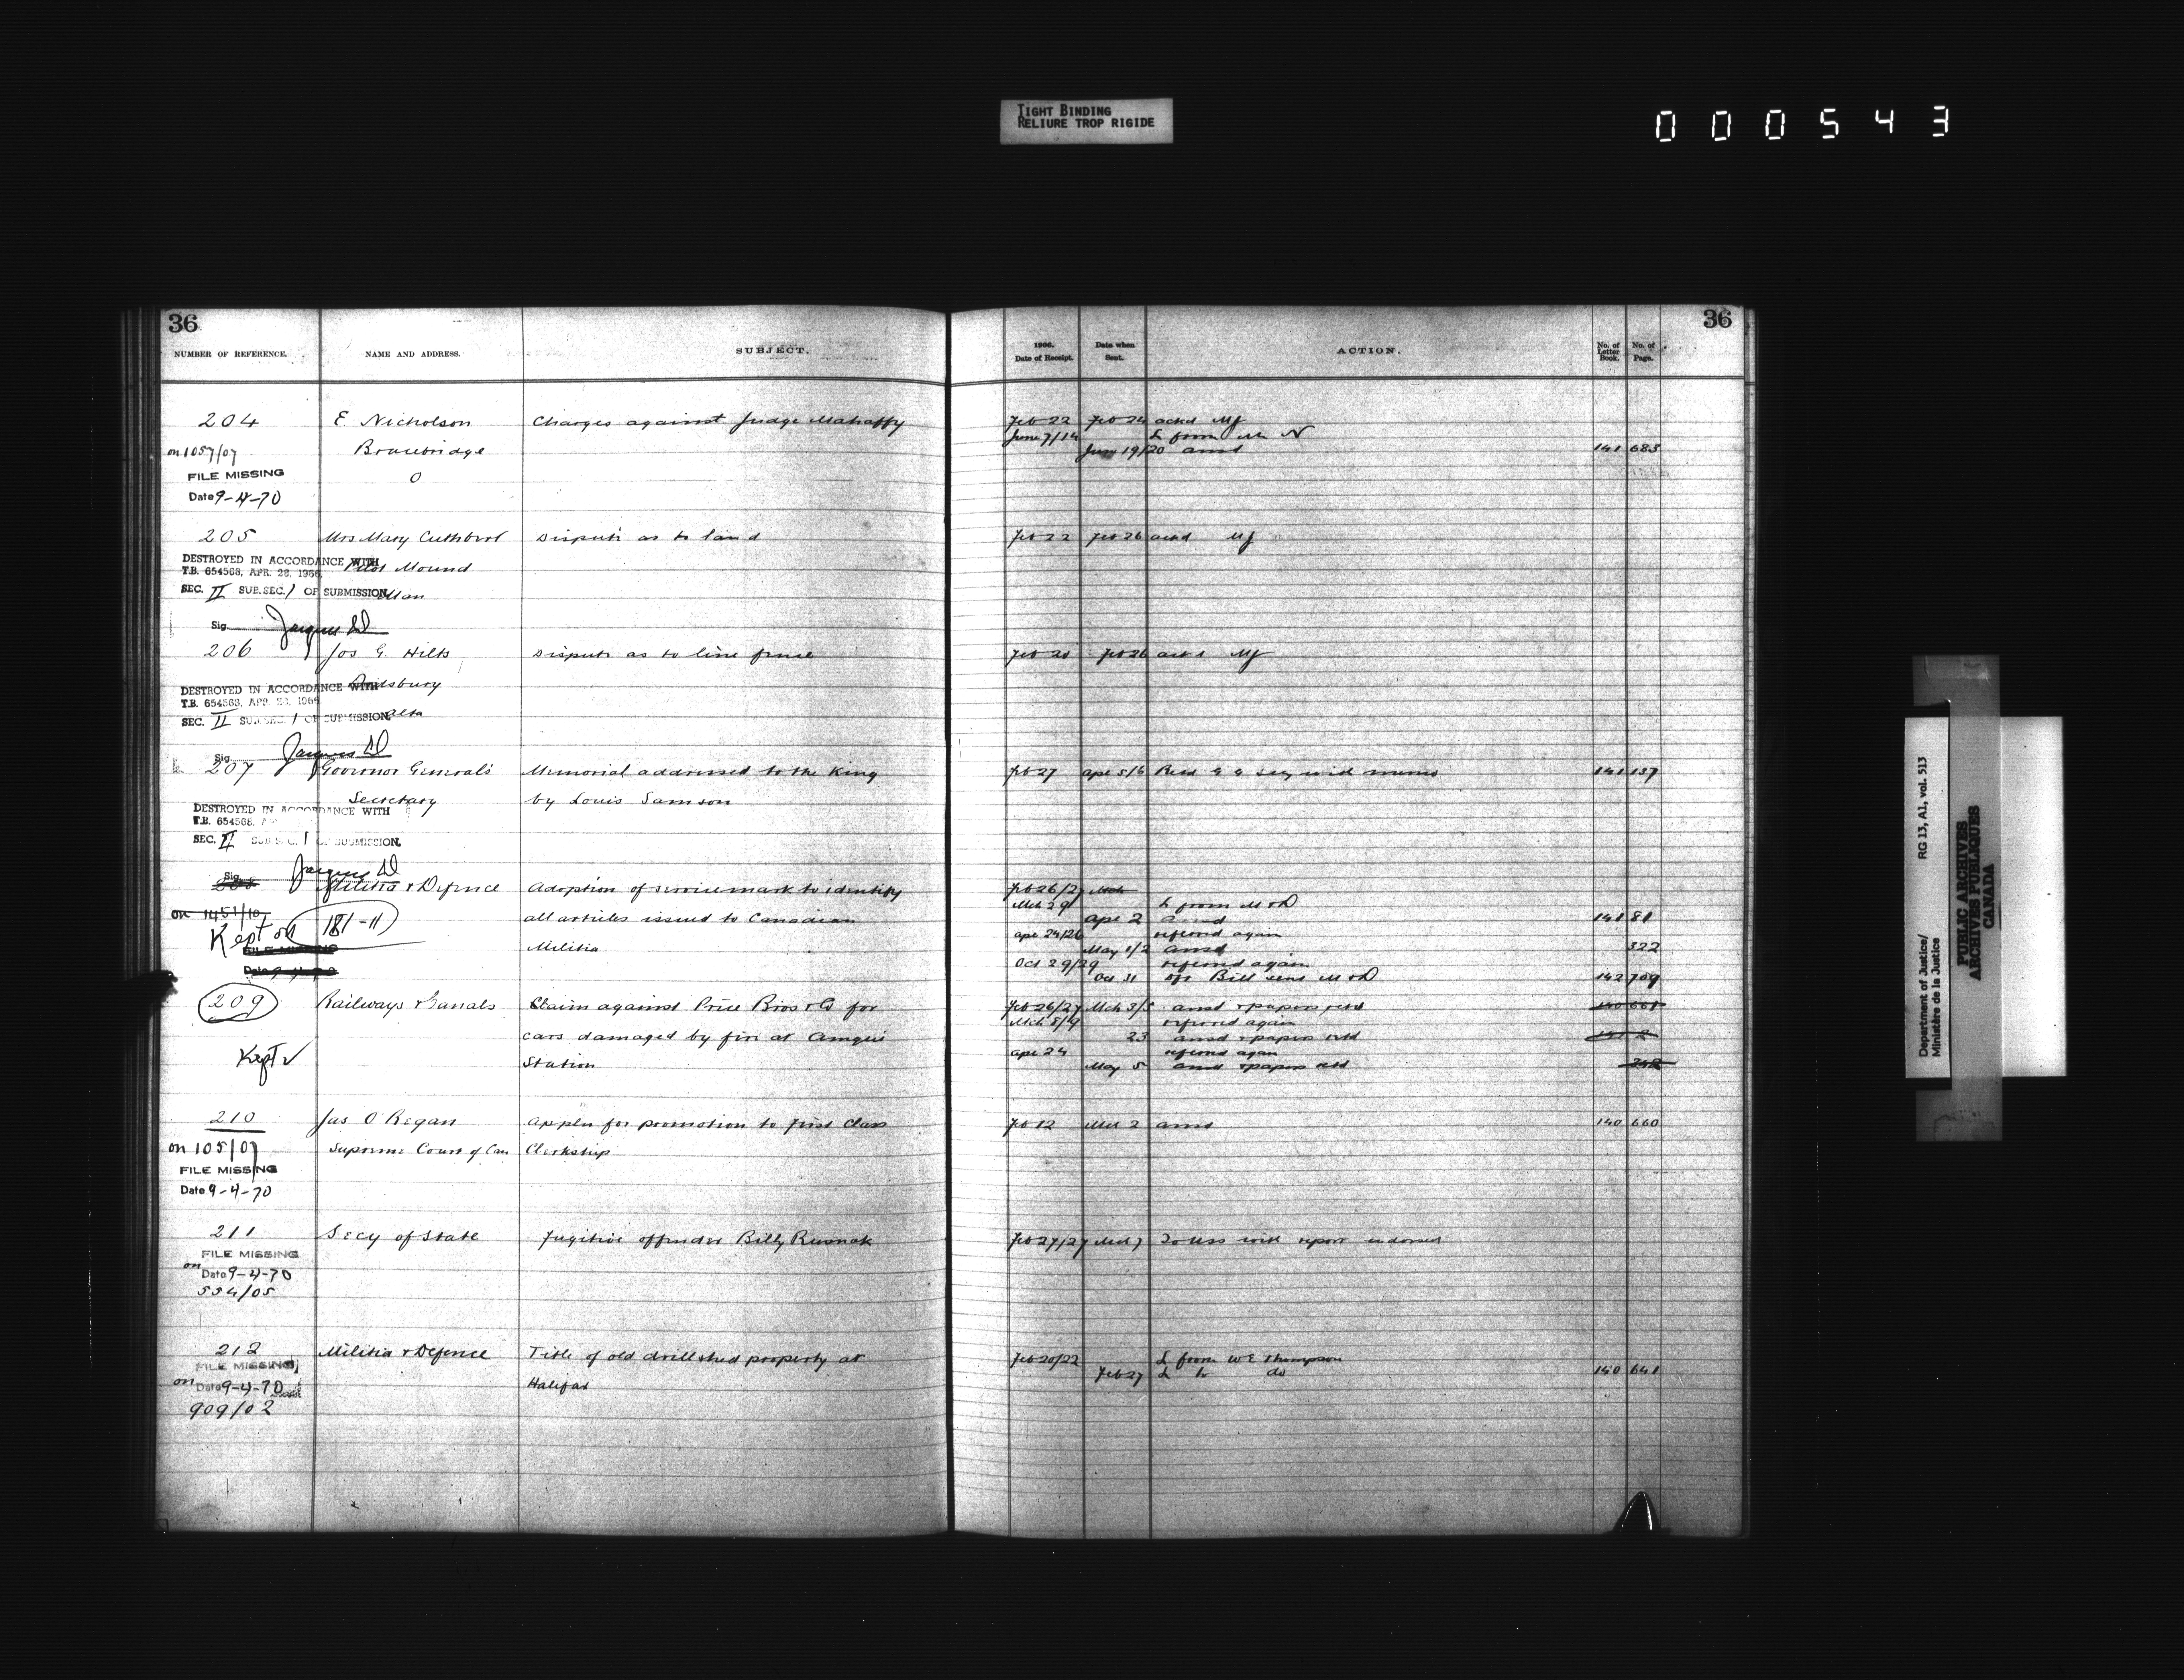 TIGHT BINDING
RELIURE TROP RIGIDE
000543
36
NUMBER OF REFERENCE. NAME AND ADDRESS. SUBJECT.
204 E Nicholson Charges against Judge Mahaffy
on 1057/07 Bracebridge
FILE MISSING O
Date 9-4-70
205 Mrs Mary Cuthbert Dispute as to land
DESTROYED IN ACCORDANCE WITH
T.B. 654568, APR. 28, 1966. Pilot Mound
SEC. II SUB.SEC. 1 OF SUBMISSION Man
Sig. Jacques
206 Jos G. Hilts Dispute as to line fence
Didsbury
DESTROYED IN ACCORDANCE WITH
T.B. 654568, APR. 28, 1966
SEC. II SUB.SEC. 1 OF SUBMISSION Alta
Sig. Jacques
207 Governor General's Memorial addressed to the King
Secretary by Louis Samson
DESTROYED IN ACCORDANCE WITH
T.B. 654568,
SEC. II SUB.SEC. 1 OF SUBMISSION.
Sig. Jacques
208 Militia & Defence Adoption of service mark to identify
on 1451/10 181-11 all articles issued to Canadian
Kept on Militia
FILE MISSING
Date 9-4-70
209 Railways & Canals Claim against Price Bros & Co for
cars damaged by fire at
Kept Station
210 Jas O'Regan Appln for promotion to first Class
on 105/07 Supreme Court of Can Clerkship
FILE MISSING
Date 9-4-70
211 Secy of State Fugitive offender Billy Rusnak
FILE MISSING
on Date 9-4-70
554/05
212 Militia & Defence Title of old drillshed property at
FILE MISSING
on Date 9-4-70 Halifax
909/02
36
1906. Date of Receipt. Date when Sent. ACTION. No. of Letter Book. No. of Page.
Feb 22 Feb 24 ackd MJ
June 7/14 L from Mr N
June 19/20 ansd 141 683
Feb 22 Feb 26 ackd MJ
Feb 20 Feb 26 ackd MJ
Feb 27 Apr 5/6 Retd G G Secy with memo 141 137
Feb 26/27 Mch
Mch 29 L from M & D
Apr 2 ansd 141 81
Apr 24/26 referred again
May 1/2 ansd 322
Oct 29/29 referred again
Oct 31 Bill sent M & D 142 709
Feb 26/27 Mch 3/5 ansd & papers retd 140 661
Mch 8/9 referred again
23 ansd & papers retd 141 2
Apr 24 referred again
May 5 ansd & papers retd
Feb 12 Mch 2 ansd 140 660
Feb 27/27 Mch 7 To USS with report endorsed
Feb 20/22 L from W E Thompson
Feb 27 L to do 140 641
Department of Justice/ RG 13, A1, vol. 513
Ministère de la Justice
PUBLIC ARCHIVES
ARCHIVES PUBLIQUES
CANADA